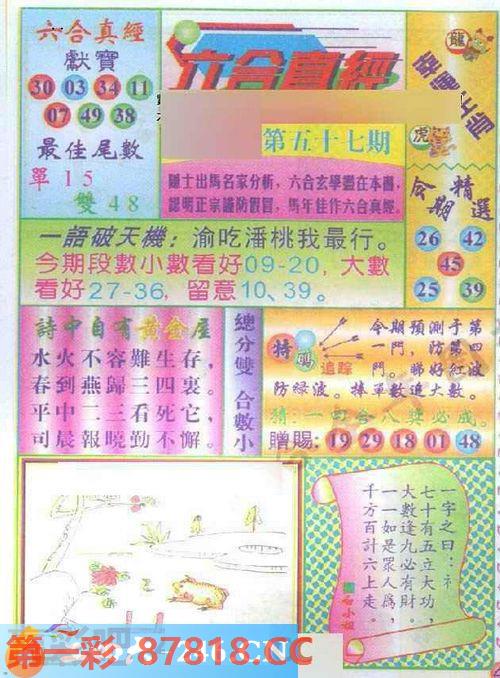 六合真經
獻寶
30 03 34 11
07 49 38
最佳尾數
單15
雙48
六合真經
第五十七期
隱士出馬名家分析，六合玄學盡在本圖，
認明正宗謹防假冒，馬年佳作六合真經。
龍
虎
今期精選
26 42
45
25 39
一語破天機：渝吃潘桃我最行。
今期段數小數看好09-20，大數
看好27-36，留意10、39。
詩中自有黃金屋
水火不容難生存，
春到燕歸三四裏。
平中二三看死它，
司晨報曉勤不懈。
總分雙 合數小
特碼
追踪
今期預測子第
一門，防第四
門。睇好紅波
防绿波。揀單數追大數。
猜：一四合八獎必成。
贈賜：19 29 18 01 48
一字之曰：礻
七十有五立大功，
大數逢九必有財。
一一如是眾人為，
千方百計六上走。
第一彩 87818.CC